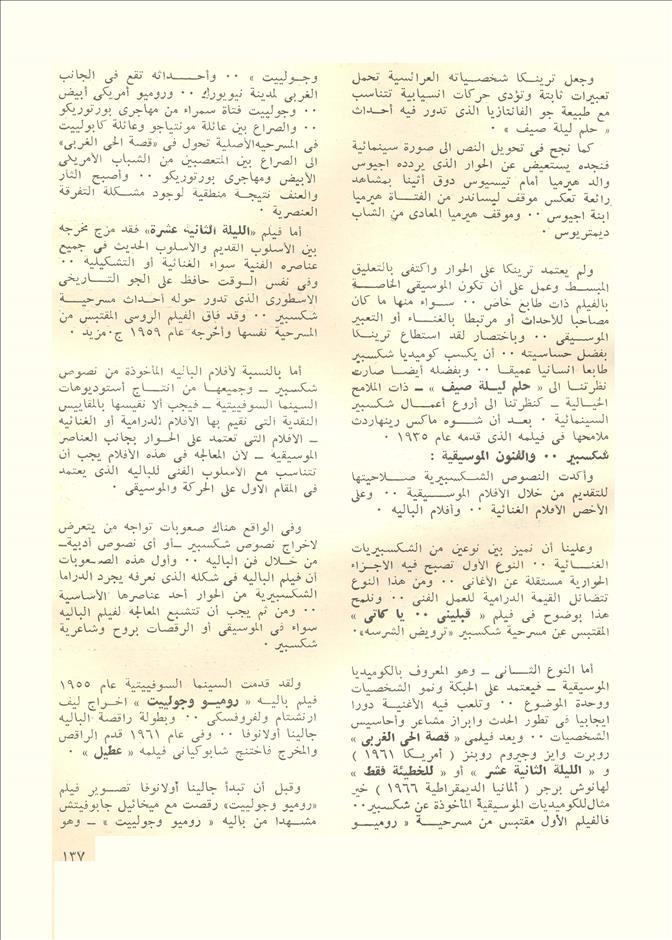 وجعل ترينكا شخصياته العرائسية تحمل
تعبيرات ثابتة وتؤدى حركات انسيابية تتناسب
مع طبيعة جو الفانتازيا الذى تدور فيه أحداث
« حلم ليلة صيف » ٠
كما نجح فى تحويل النص الى صورة سينمائية
فنجده يستعيض عن الحوار الذى يردده اجيوس
والد هيرميا أمام تيسيوس دوق أثينا بمشاهد
رائعة تعكس موقف ليساندر من الفتاة هيرميا
ابنة اجيوس ٠٠ وموقف هيرميا المعادى من الشاب
ديمتريوس ٠
ولم يعتمد ترينكا على الحوار واكتفى بالتعليق
المبسط وعمل على أن تكون الموسيقى الخاصة
بالفيلم ذات طابع خاص ٠٠ سواء منها ما كان
مصاحبا للأحداث أو مرتبطا بالغناء أو التعبير
الموسيقى ٠٠ وباختصار لقد استطاع ترينكا
بفضل حساسيته ٠٠ أن يكسب كوميديا شكسبير
طابعا انسانيا عميقا ٠٠ وبفضله أيضا صارت
نظرتنا الى « حلم ليلة صيف » ــ ذات الملامح
الخيالية ــ كنظرتنا الى أروع أعمال شكسبير
السينمائية ٠ بعد أن شوه ماكس رينهاردت
ملامحها فى فيلمه الذى قدمه عام ١٩٣٥ ٠
شكسبير ٠٠ والفنون الموسيقية :
وأكدت النصوص الشكسبيرية صلاحيتها
للتقديم من خلال الأفلام الموسيقية ٠٠ وعلى
الأخص الأفلام الغنائية ٠٠ وأفلام الباليه ٠
وعلينا أن نميز بين نوعين من الشكسبيريات
الغنائية ٠٠ النوع الأول تصبح فيه الأجزاء
الحوارية مستقلة عن الأغانى ٠٠ ومن هذا النوع
تتضائل القيمة الدرامية للعمل الفنى ٠٠ ونلمح
هذا بوضوح فى فيلم « قبلينى ٠٠ يا كاتى »
المقتبس عن مسرحية شكسبير «ترويض الشرسه»٠
أما النوع الثانى ــ وهو المعروف بالكوميديا
الموسيقية ــ فيعتمد على الحبكة ونمو الشخصيات
ووحدة الموضوع ٠٠ وتلعب فيه الأغنية دورا
ايجابيا فى تطور الحدث وابراز مشاعر وأحاسيس
الشخصيات ٠٠ ويعد فيلمى « قصة الحى الغربى »
روبرت وايز وجيروم روبنز ( أمريكا ١٩٦١ )
و « الليلة الثانية عشر » أو « للخطيئة فقط »
لهانوش برجر ( ألمانيا الديمقراطية ١٩٦٦ ) خير
مثال للكوميديات الموسيقية المأخوذة عن شكسبير٠٠
فالفيلم الأول مقتبس من مسرحية « روميو
وجولييت » ٠٠ وأحداثه تقع فى الجانب
الغربى لمدينة نيويورك ٠٠ وروميو أمريكى أبيض
٠٠ وجولييت فتاة سمراء من مهاجرى بورتوريكو
٠٠ والصراع بين عائلة مونتياجو وعائلة كابولييت
فى المسرحيه الأصلية تحول فى «قصة الحى الغربى»
الى الصراع بين المتعصبين من الشباب الأمريكى
الأبيض ومهاجرى بورتوريكو ٠٠ وأصبح الثار
والعنف نتيجة منطقية لوجود مشكلة التفرقة
العنصرية ٠
أما فيلم «الليلة الثانية عشرة» فقد مزج مخرجه
بين الأسلوب القديم والأسلوب الحديث فى جميع
عناصره الفنية سواء الغنائية أو التشكيلية ٠٠
وفى نفس الوقت حافظ على الجو التاريخى
الاسطورى الذى تدور حوله أحداث مسرحية
شكسبير ٠٠ وقد فاق الفيلم الروسى المقتبس من
المسرحية نفسها وأخرجه عام ١٩٥٩ ج٠مزيد ٠
أما بالنسبة لأفلام الباليه المأخوذة من نصوص
شكسبير ــ وجميعها من انتاج أستوديوهات
السينما السوفييتية ــ فيجب ألا نقيسها بالمقاييس
النقدية التى نقيم بها الأفلام الدرامية أو الغنائيه
ــ الأفلام التى تعتمد على الحوار بجانب العناصر
الموسيقيه ــ لأن المعالجه فى هذه الأفلام يجب أن
تتناسب مع الأسلوب الفنى للباليه الذى يعتمد
فى المقام الأول على الحركة والموسيقى ٠
وفى الواقع هناك صعوبات تواجه من يتعرض
لاخراج نصوص شكسبير ــأو أى نصوص أدبيةــ
من خلال فن الباليه ٠٠ وأول هذه الصعوبات
أن فيلم الباليه فى شكله الذى نعرفه يجرد الدراما
الشكسبيرية من الحوار أحد عناصرها الأساسية
٠٠ ومن ثم يجب أن تتشبع المعالجه لفيلم الباليه
سواء فى الموسيقى أو الرقصات بروح وشاعرية
شكسبير ٠
ولقد قدمت السينما السوفييتية عام ١٩٥٥
فيلم باليه « روميو وجولييت » اخراج ليف
ارنشتام ولفروفسكى ٠٠ وبطولة راقصة الباليه
جالينا أولانوفا ٠٠ وفى عام ١٩٦١ قدم الراقص
والمخرج فاختنج شابوكيانى فيلمه « عطيل » ٠
وقبل أن تبدأ جالينا أولانوفا تصوير فيلم
«روميو وجولييت» رقصت مع ميخائيل جابوفيتش
مشهدا من باليه « روميو وجولييت » ــ وهو
١٣٧